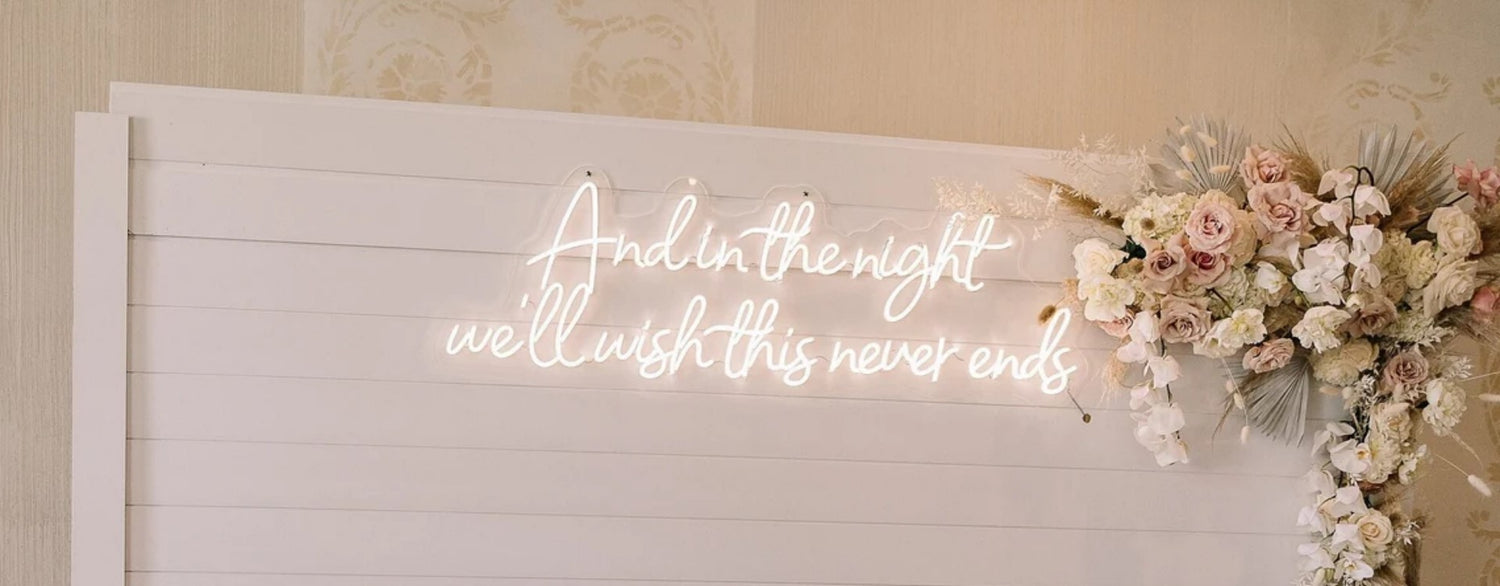 And in the night
we'll wish this never ends